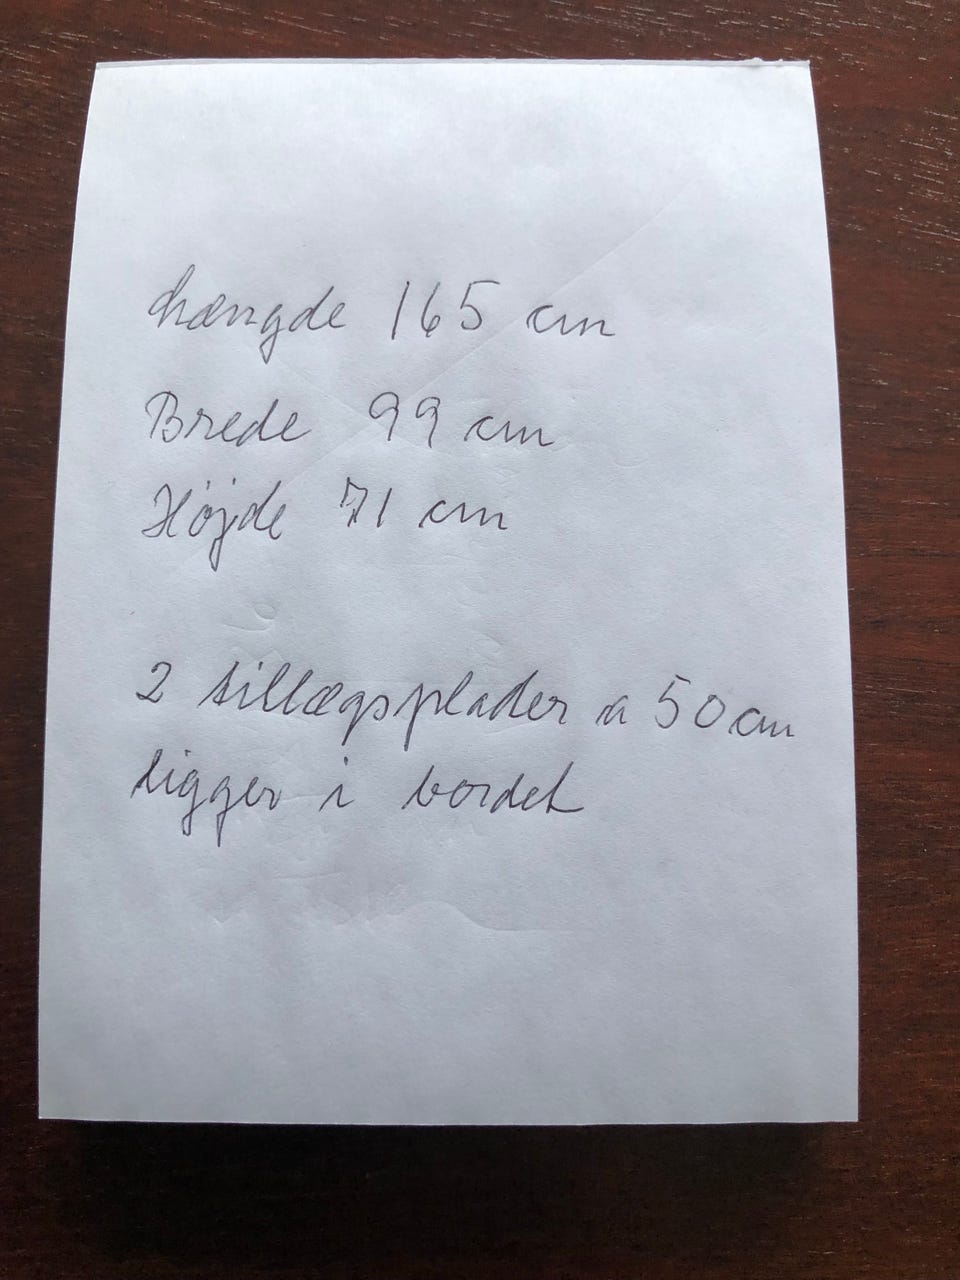 Længde 165 cm
Brede 99 cm
Højde 71 cm
2 tillægsplader a 50 cm
ligger i bordet